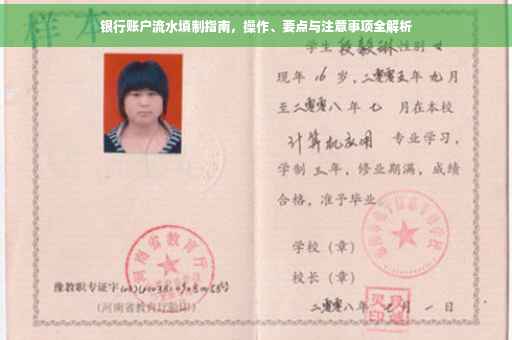 样本
银行账户流水填制指南，操作、要点与注意事项全解析
学生 段毅琳 性别 女
现年 16 岁，二零零五年 九月
至二零零八年 七 月在本校
计算机应用 专业学习，
学制 三 年，修业期满，成绩
合格，准予毕业。
学校（章）
校长（章）
二零零八年 七 月 一 日
河南省教育厅
豫教职专证字
（河南省教育厅验印）